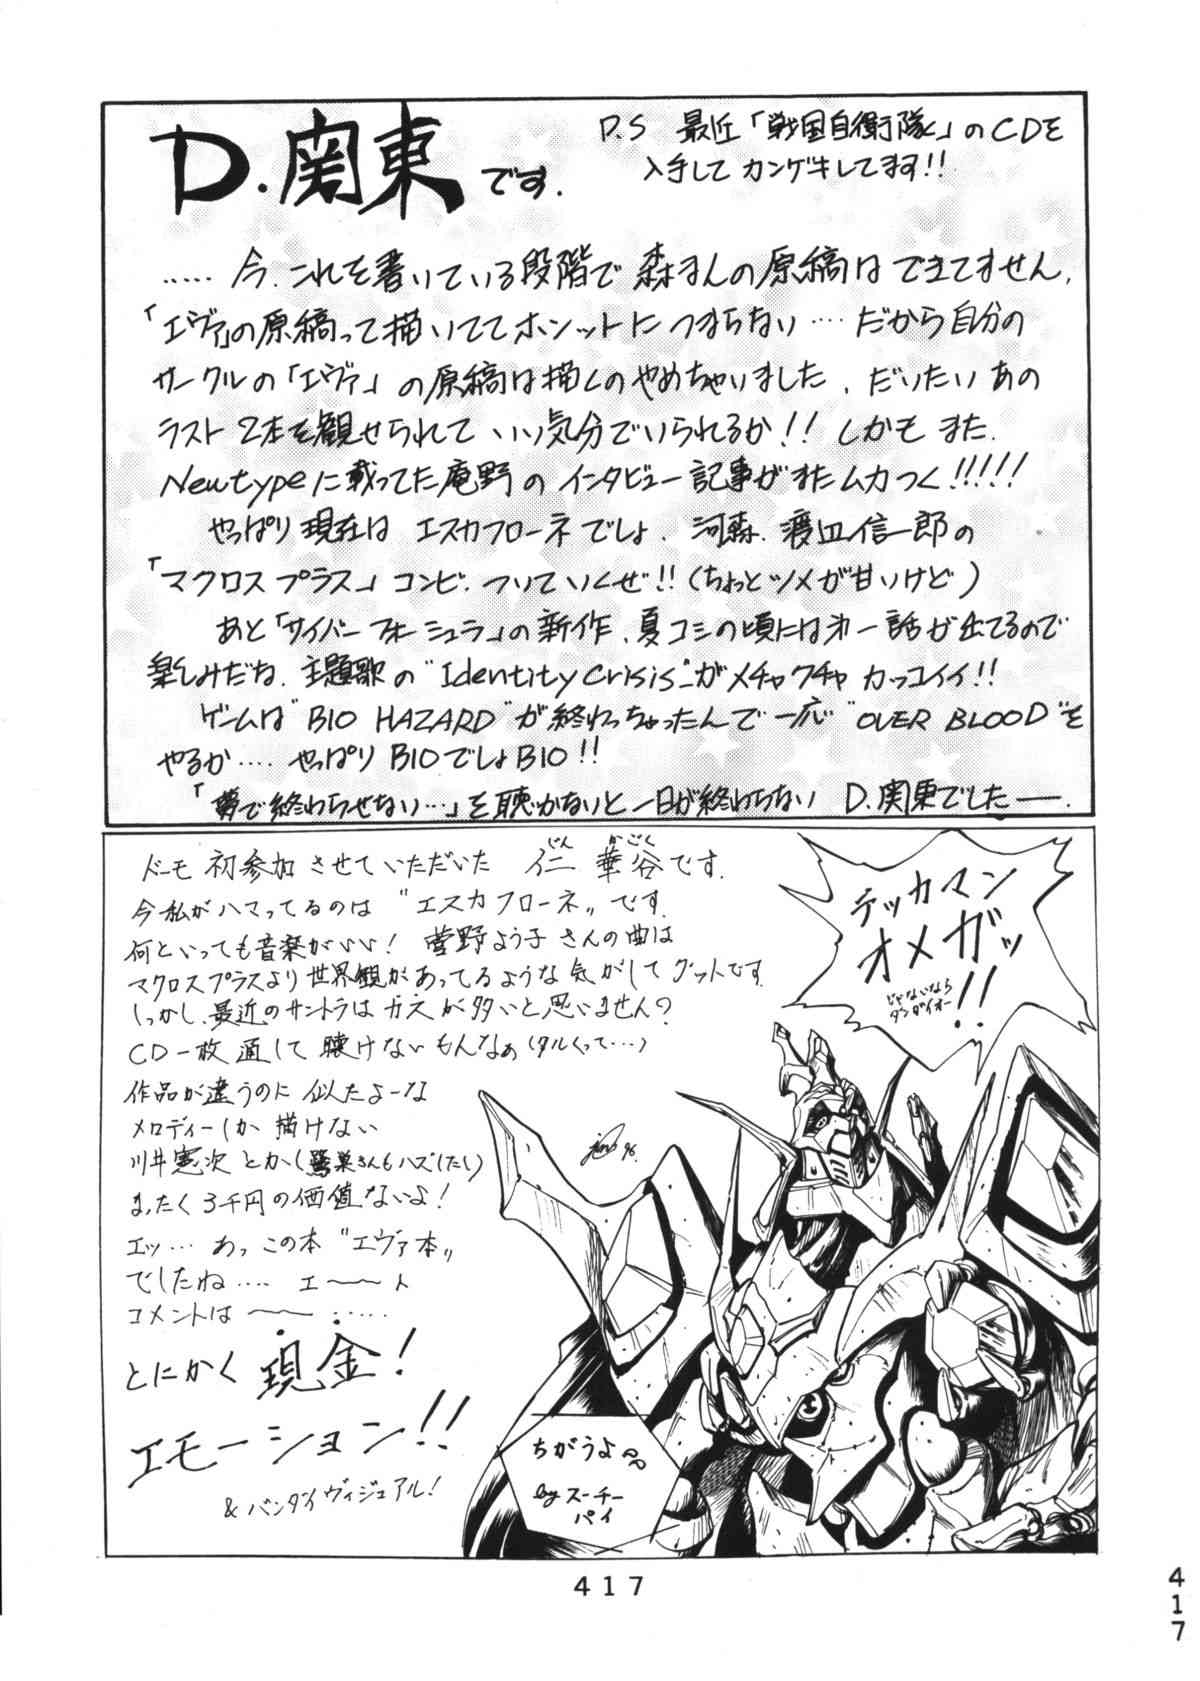 D.関東です.
P.S 最近「戦国自衛隊」のCDを
入手して カンゲキしてます!!
..... 今、これを書いている段階で 森さんの原稿は できてません.
「エヴァ」の原稿って描いててホンットにつまらない…. だから自分の
サークルの「エヴァ」の原稿は描くのやめちゃいました. だいたいあの
ラスト2本を観せられて いい気分でいられるか!! しかも また.
Newtypeに載ってた庵野の インタビュー記事がまたムカつく!!!!!
やっぱり現在は エスカフローネでしょ. 河森. 渡辺信一郎の
「マクロスプラス」コンビ. ついていくぜ!! (ちょっとツメが甘いけど)
あと「サイバーフォーミュラ」の新作、夏コミの頃には第一話が出てるので
楽しみだね. 主題歌の "Identity Crisis"がメチャクチャ カッコイイ!!
ゲームは"BIO HAZARD"が終わっちゃったんで一応"OVER BLOOD"を
やるか.... やっぱりBIOでしょBIO!!
「夢で終わらせない…」を聴かないと一日が終わらない D.関東でした―.
ドーモ 初参加 させていただいた 仁(じん) 華谷(かごく)です.
今私がハマってるのは "エスカフローネ" です.
何といっても音楽がいい! 菅野よう子さんの曲は
マクロスプラスより世界観があってるような気がして グットです.
しっかし、最近のサントラはカスが多いと思いません?
CD一枚通して聴けないもんなぁ(タルくって…)
作品が違うのに 似たよーな
メロディーしか描けない
川井憲次 とか(鷺巣さんもハズしたし)
まったく3千円の価値ないよ!
エッ… あっ この本 "エヴァ本"
でしたね.... エ〜〜ト
コメントは 〜〜 .....
とにかく 現金!
エモーション!!
& バンダイヴィジュアル!
テッカマン
オメガッ!!
じゃないなら
ダンガイオー
96.
ちがうよ
by スーチー
パイ
417
417